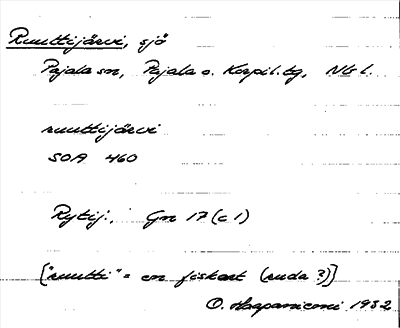 Ruuttijärvi, sjö
Pajala sn, Pajala o. Korpil. tg, Nb l.
ruuttijärvi
SOA 460
Rytij., Gn 17 (c 1)
["ruutti" = en fiskart (ruda?)]
O. Haapaniemi 1932